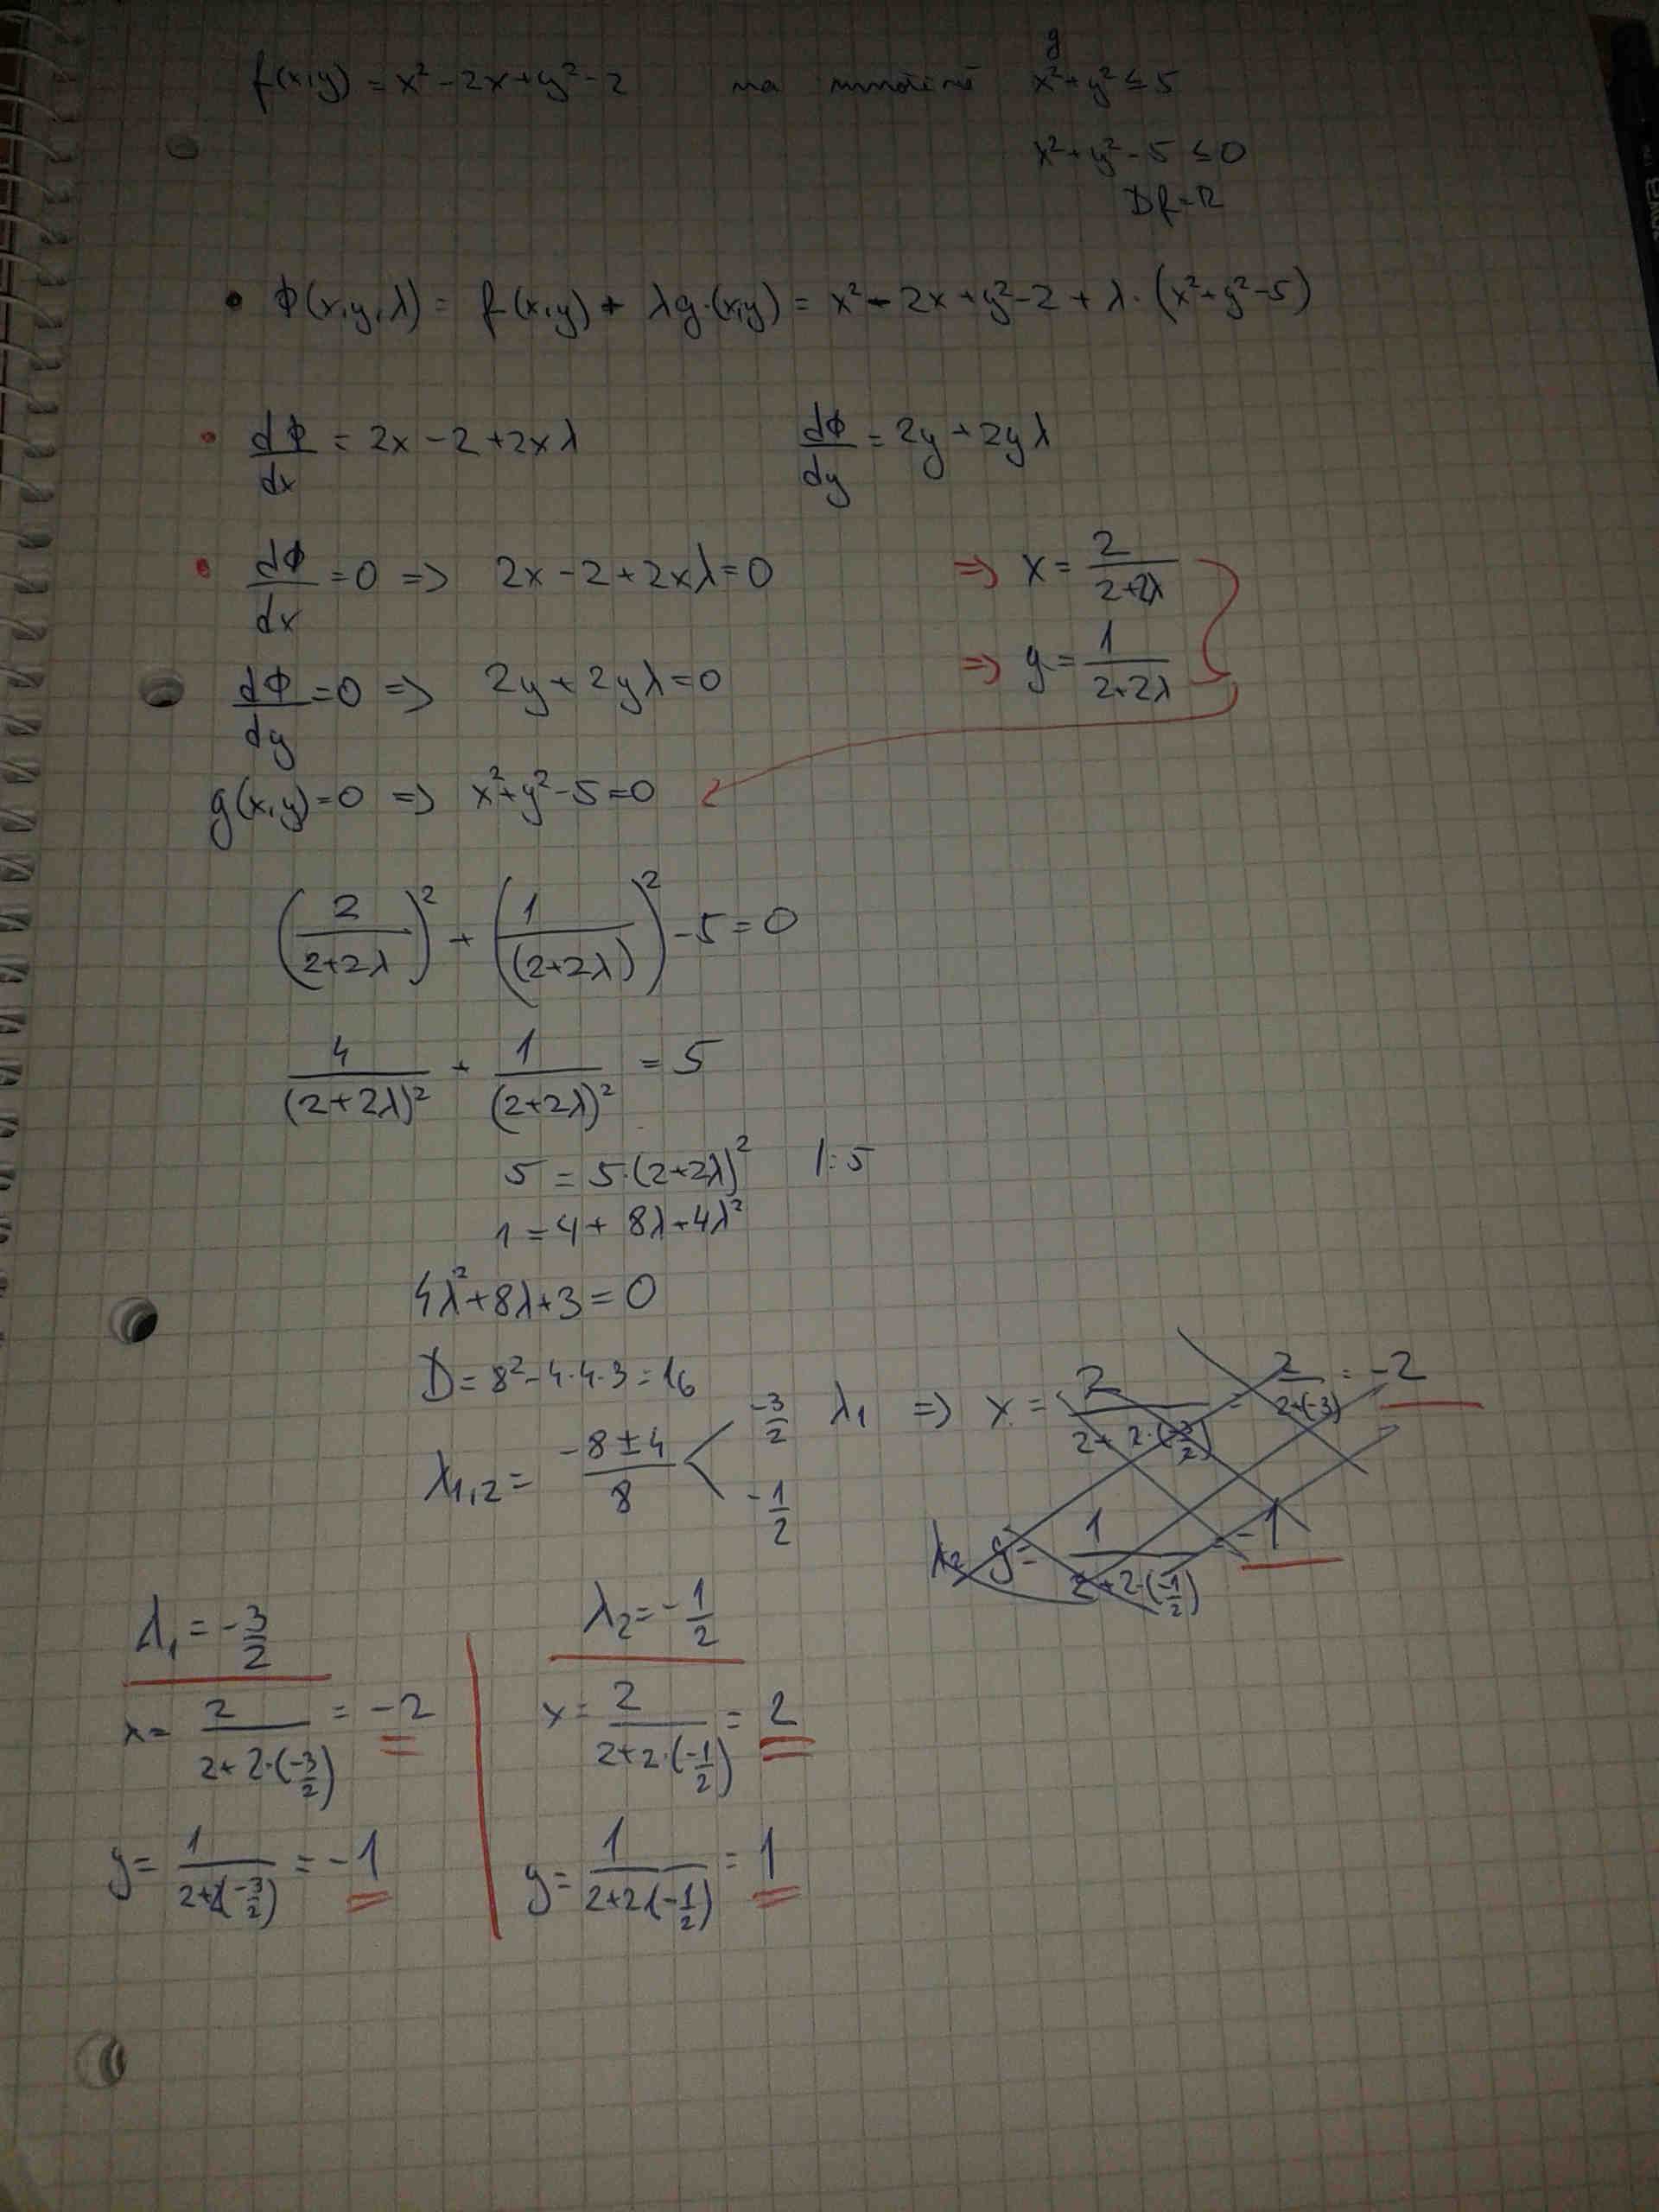 f(x,y) = x² - 2x + y² - 2 na množině x² + y² ≤ 5
g
x² + y² - 5 ≤ 0
Df = R
• ϕ(x,y,λ) = f(x,y) + λg·(x,y) = x² - 2x + y² - 2 + λ·(x² + y² - 5)
• dϕ/dx = 2x - 2 + 2xλ dϕ/dy = 2y + 2yλ
• dϕ/dx = 0 => 2x - 2 + 2xλ = 0 => x = 2/(2+2λ)
dϕ/dy = 0 => 2y + 2yλ = 0 => y = 1/(2+2λ)
g(x,y) = 0 => x² + y² - 5 = 0
(2/(2+2λ))² + (1/(2+2λ))² - 5 = 0
4/(2+2λ)² + 1/(2+2λ)² = 5
5 = 5·(2+2λ)² /:5
1 = 4 + 8λ + 4λ²
4λ² + 8λ + 3 = 0
D = 8² - 4·4·3 = 16
λ1,2 = (-8 ± 4)/8 < -3/2 λ1 => x = 2/(2+2·(-3/2)) = 2/(2+(-3)) = -2
-1/2
λ2 y = 1/(2+2·(-1/2)) = -1
λ1 = -3/2 λ2 = -1/2
x = 2/(2+2·(-3/2)) = -2 x = 2/(2+2·(-1/2)) = 2
y = 1/(2+2(-3/2)) = -1 y = 1/(2+2(-1/2)) = 1